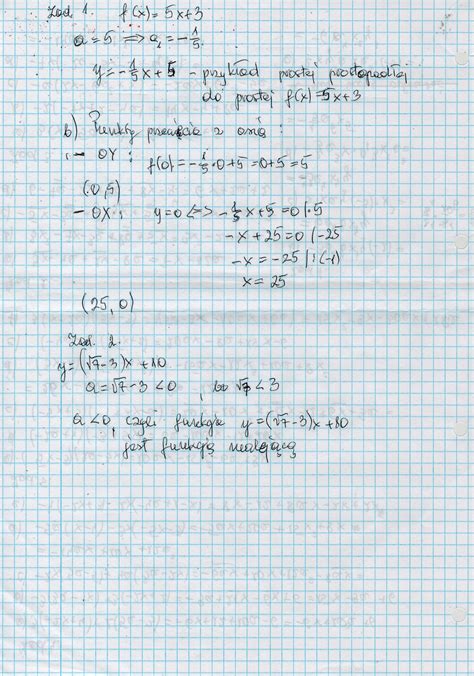 Zad. 1. f(x) = 5x+3
a = 5 ⟹ a₁ = -1/5.
y = -1/5x + 5 - przykład prostej prostopadłej
do prostej f(x) = 5x+3
b) Punkty przecięcia z osią :
- OY : f(0) = -1/5·0+5 = 0+5 = 5
(0,5)
- OX : y=0 <=> -1/5x+5 = 0 /·5
-x + 25 = 0 /-25
-x = -25 /:(-1)
x = 25
(25, 0)
Zad. 2.
y = (√7-3)x + 10
a = √7-3 < 0, bo √7 < 3
a < 0, czyli funkcja y = (√7-3)x + 10
jest funkcją malejącą